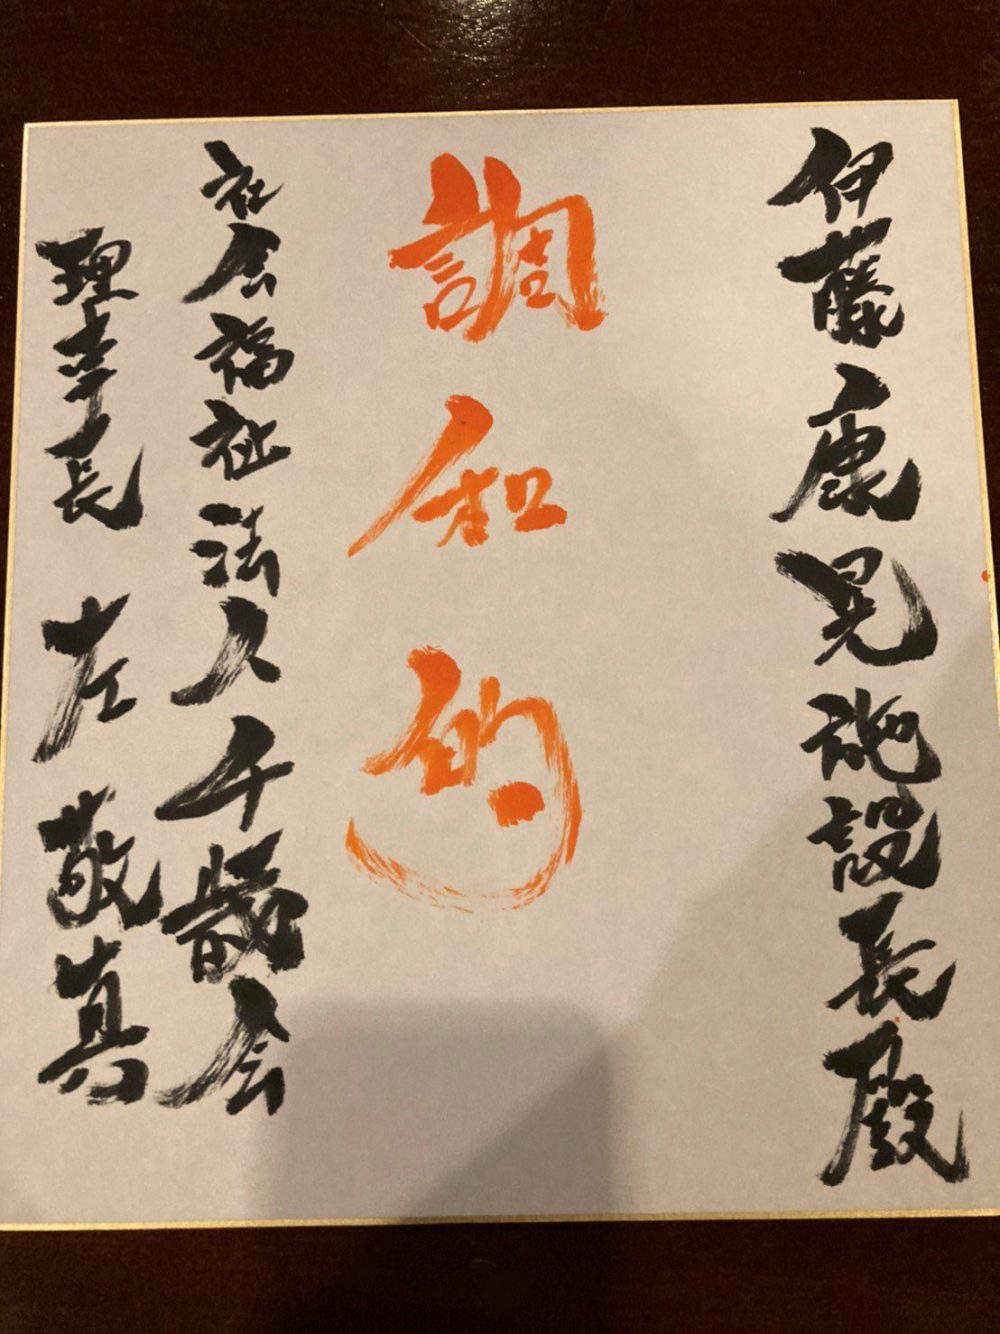 伊藤康晃施設長殿
調和的
社会福祉法人千歳会
理事長 左 敬真